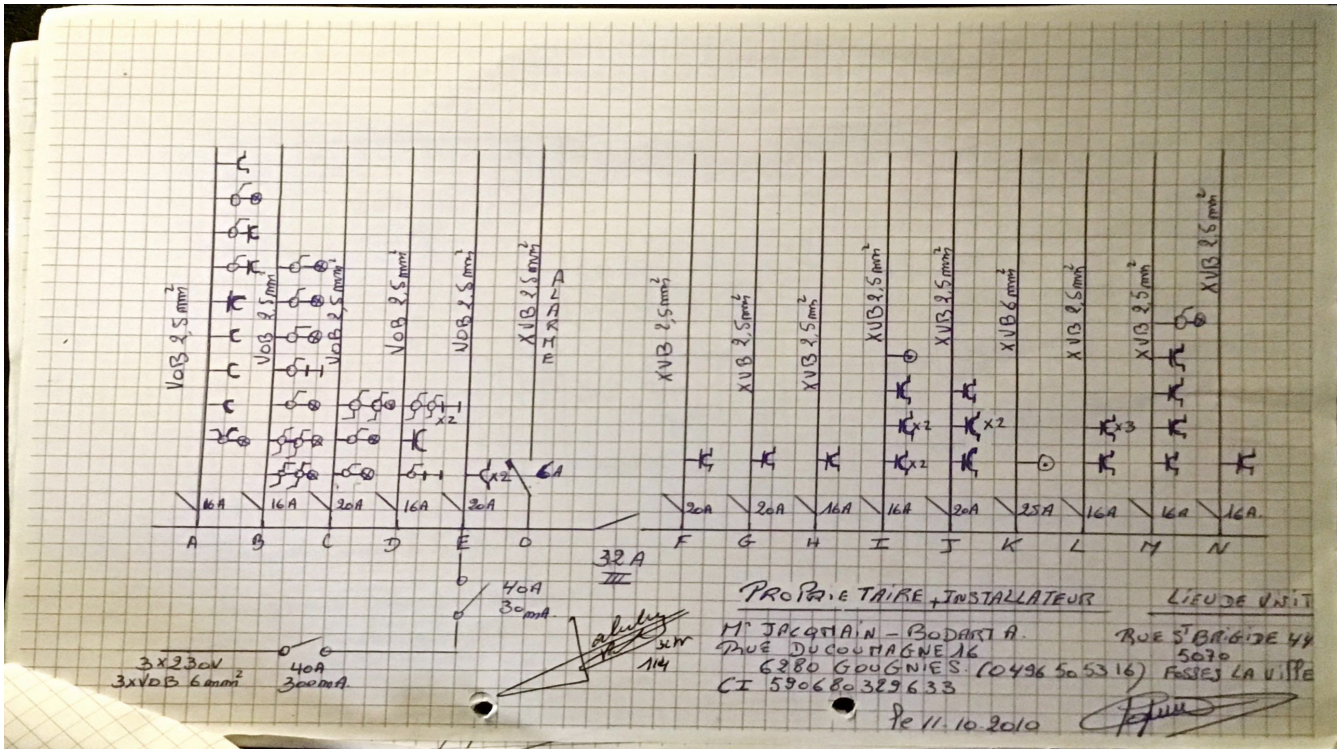 VOB 2,5mm²
VOB 2,5mm²
VOB 2,5mm²
VOB 2,5mm²
VOB 2,5mm²
XVB 2,5mm²
ALARME
XVB 2,5mm²
XVB 2,5mm²
XVB 2,5mm²
XVB 2,5mm²
XVB 2,5mm²
XVB 6mm²
XVB 2,5mm²
XVB 2,5mm²
XVB 2,5mm²
x2
x2
x2
x2
x2
x3
6A
16A 16A 20A 16A 20A 20A 20A 16A 16A 20A 25A 16A 16A 16A.
A B C D E O F G H I J K L M N
32A
III
40A
30mA.
3x230V
3xVOB 6mm²
40A
300mA.
114
PROPRIETAIRE + INSTALLATEUR
Mr JACQMAIN - BODART A.
RUE DU COUMAGNE 16
6280 GOUGNIES. (0496 50 53 16)
CI 590680329633
le 11.10.2010
LIEU DE VISIT
RUE St BRIGIDE 44
5070
FOSSES LA VILLE